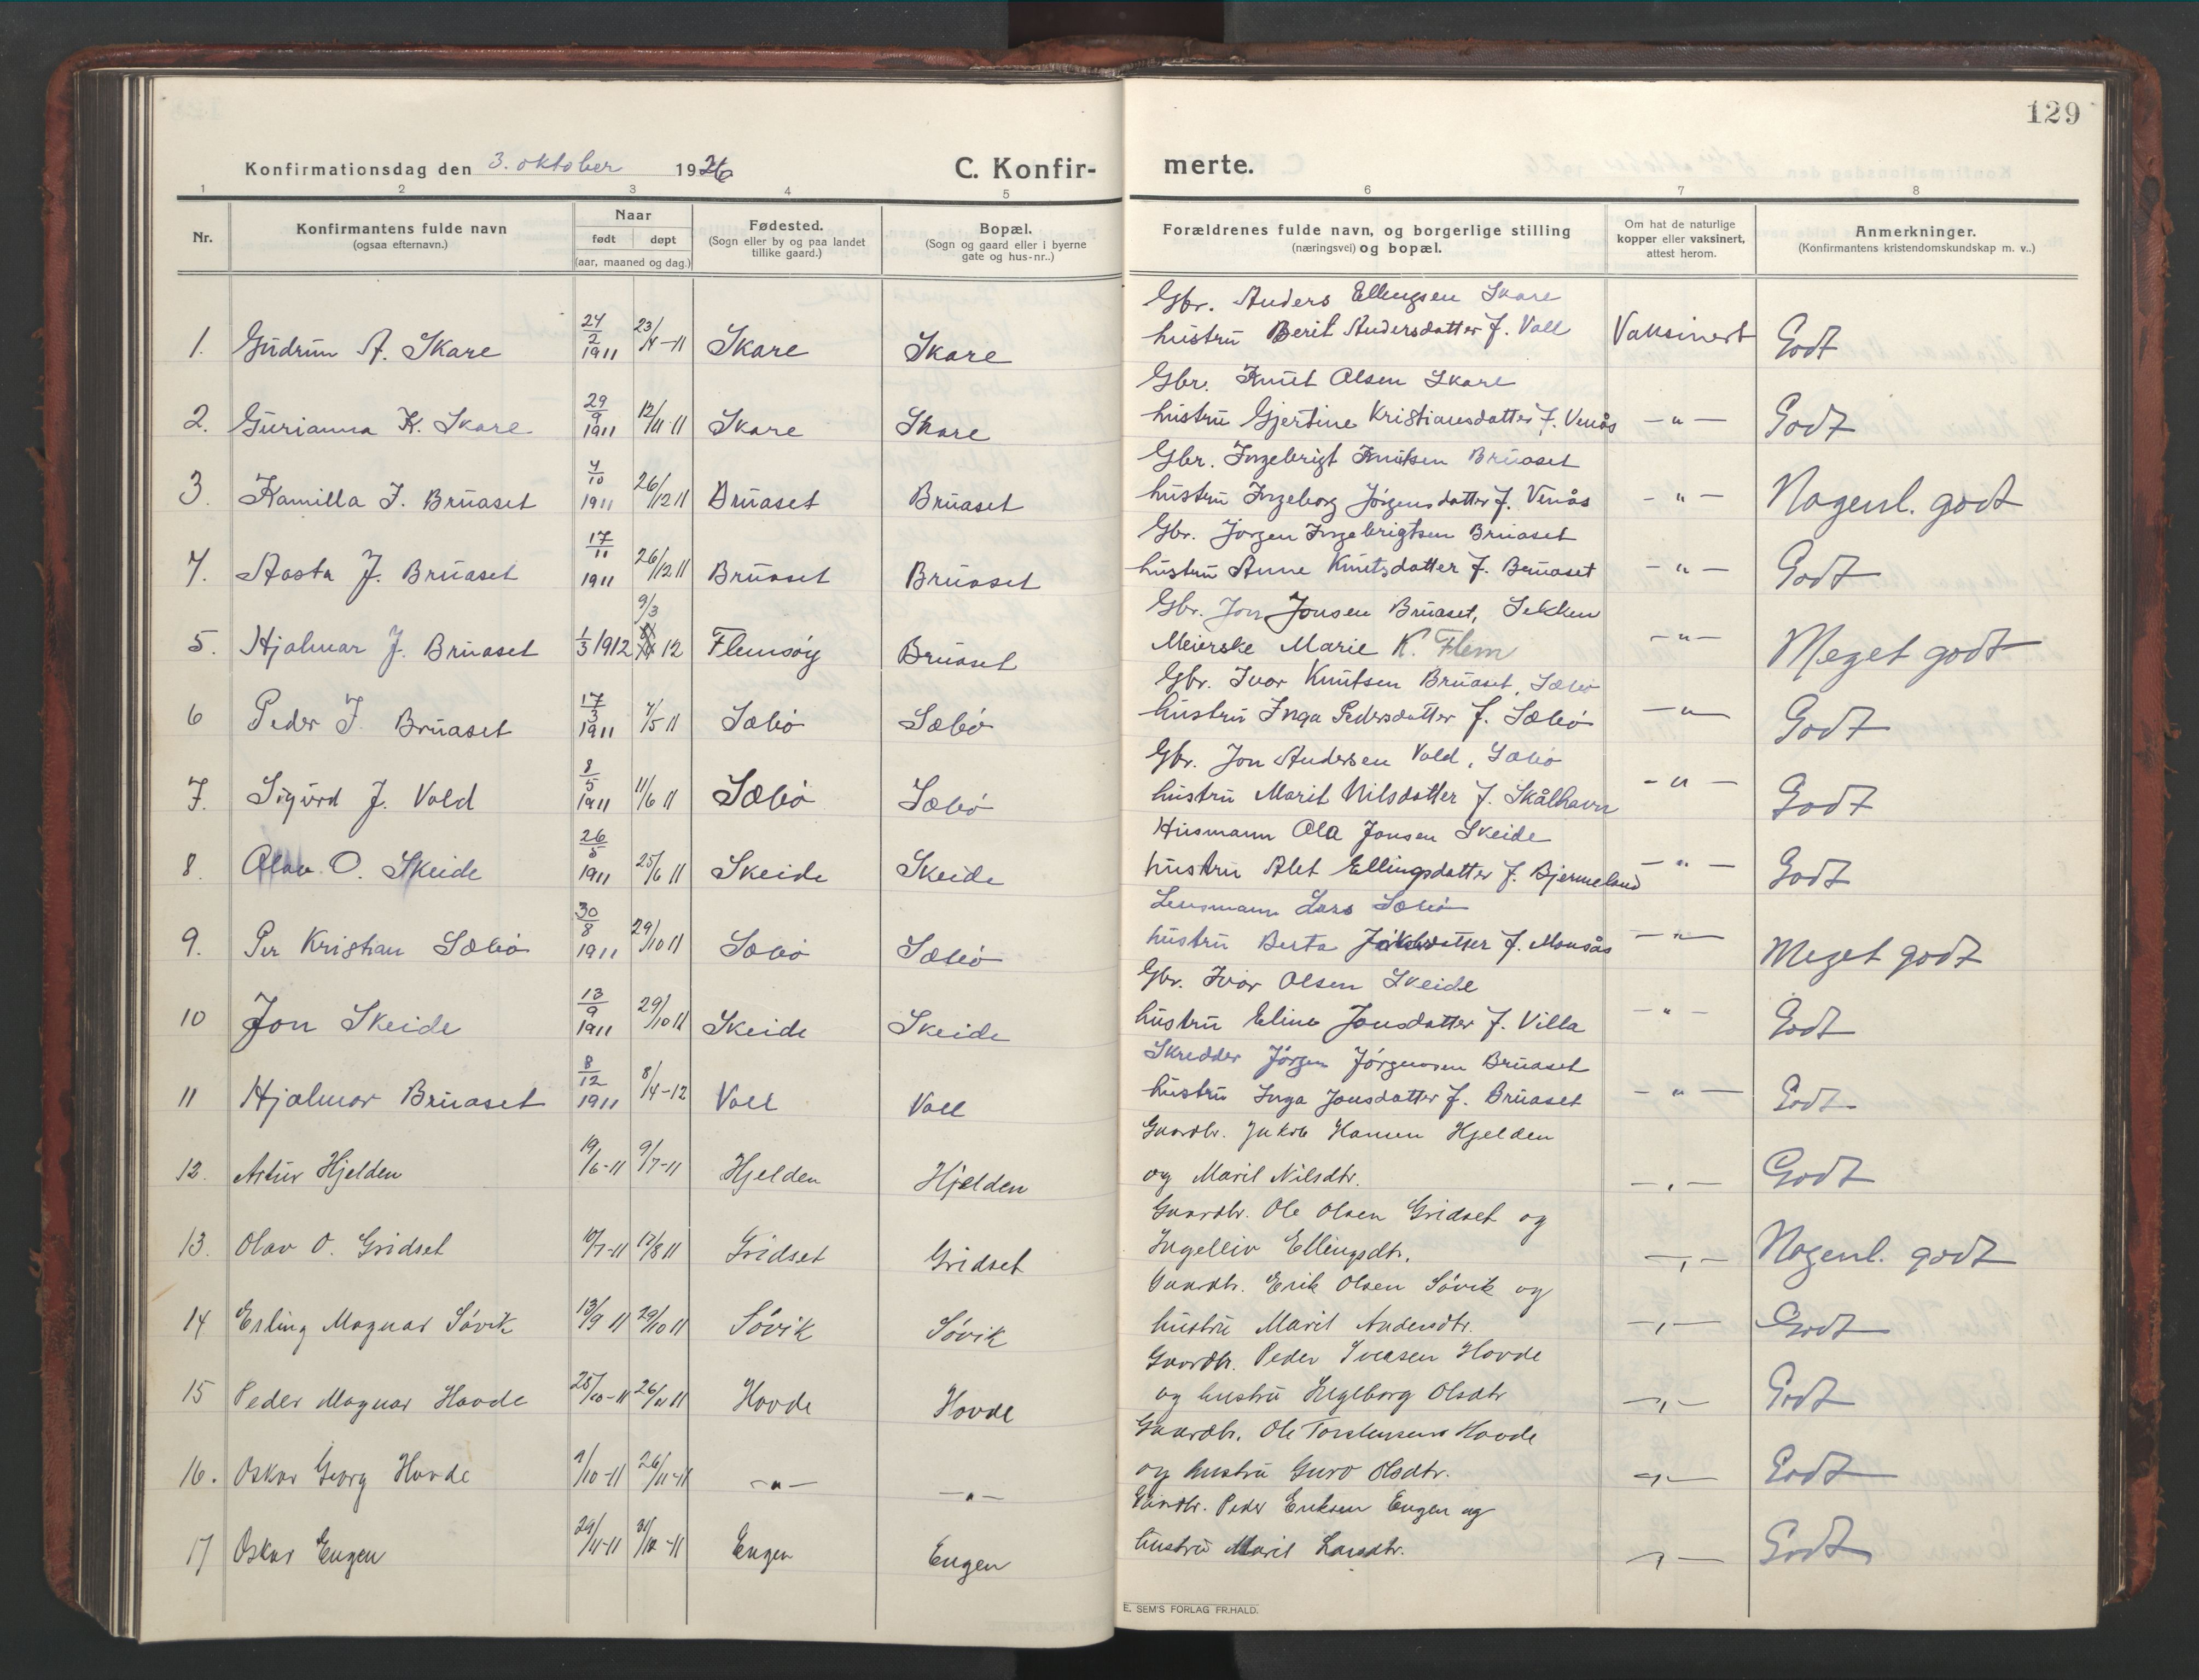 129
Konfirmationsdag den 3. oktober 1926 C. Konfir- merte.
1 2 3 4 5 6 7 8
Nr. Konfirmantens fulde navn (ogsaa efternavn.) Naar født døpt (aar, maaned og dag.) Fødested. (Sogn eller by og paa landet tillike gaard.) Bopæl. (Sogn og gaard eller i byerne gate og hus-nr..) Forældrenes fulde navn, og borgerlige stilling (næringsvei) og bopæl. Om hat de naturlige kopper eller vaksinert, attest herom. Anmerkninger. (Konfirmantens kristendomskundskap m. v..)
Gbr. Anders Ellingsen Skare
1. Gudrun A. Skare 24/2 1911 23/4-11 Skare Skare hustru Berit Andersdatter f. Voll Vaksinert Godt
Gbr. Knut Olsen Skare
2. Gurianna K. Skare 29/9 1911 12/11-11 Skare Skare hustru Gjertine Kristiansdatter f. Venås -"- Godt
Gbr. Ingebrigt Knutsen Bruaset
3. Kamilla I. Bruaset 4/10 1911 26/12 11 Bruaset Bruaset hustru Ingeborg Jørgensdatter f. Venås -"- Nogenl. godt
Gbr. Jørgen Ingebrigtsen Bruaset
4. Aasta J. Bruaset 17/11 1911 26/12 11 Bruaset Bruaset hustru Anne Knutsdatter f. Bruaset -"- Godt
Gbr. Jon Jonsen Bruaset, Sekken
5. Hjalmar J. Bruaset 1/3 1912 9/3 12 Flemsøy Bruaset Meierske Marie K. Flem -"- Meget godt
Gbr. Ivar Knutsen Bruaset, Sæbø
6 Peder I. Bruaset 17/3 1911 7/5 11 Sæbø Sæbø hustru Inga Pedersdatter f. Sæbø -"- Godt
Gbr. Jon Andersen Vold, Sæbø
7. Sigurd J. Vold 8/5 1911 11/6 11 Sæbø Sæbø hustru Marit Nilsdatter f. Skålhavn -"- Godt
Husmann Ola Jonsen Skeide
8. Olav O. Skeide 26/5 1911 25/6 11 Skeide Skeide hustru Alet Ellingsdatter f. Bjermeland -"- Godt
Lensmann Lars Sæbø
9. Per Kristian Sæbø 30/8 1911 29/10 11 Sæbø Sæbø hustru Berta f. Monsås -"- Meget godt
Gbr. Ivar Olsen Skeide
10 Jon Skeide 13/9 1911 29/10 11 Skeide Skeide hustru Eline Jonsdatter f. Villa -"- Godt
Skredder Jørgen Jørgensen Bruaset
11 Hjalmar Bruaset 8/12 1911 8/4-12 Voll Voll hustru Inga Jonsdatter f. Bruaset -"- Godt
Gaardbr. Jakob Hansen Hjelden
12. Artur Hjelden 19/6-11 9/7-11 Hjelden Hjelden og Marit Nilsdtr. -"- Godt
Gaardbr. Ole Olsen Gridset og
13. Olav O. Gridset 10/7-11 17/8 11 Gridset Gridset Ingelliv Ellingsdtr. -"- Nogenl. godt
Gaardbr. Erik Olsen Søvik og
14 Erling Magnar Søvik 13/9 11 29/10 11 Søvik Søvik hustru Marit Andersdtr. -"- Godt
Gaardbr. Peder Iversen Hovde
15 Peder Magnar Hovde 25/10-11 26/11 11 Hovde Hovde og hustru Ingeborg Olsdtr -"- Godt
Gaardbr. Ole Torstensen Hovde
16. Oskar Georg Hovde 9/10-11 26/11-11 -"- -"- og hustru Guro Olsdtr. -"- Godt
Gaardbr. Peder Eriksen Engen og
17 Oskar Engen 29/11-11 31/12-11 Engen Engen hustru Marit Larsdtr. -"- Godt
E. SEM'S FORLAG FR.HALD.